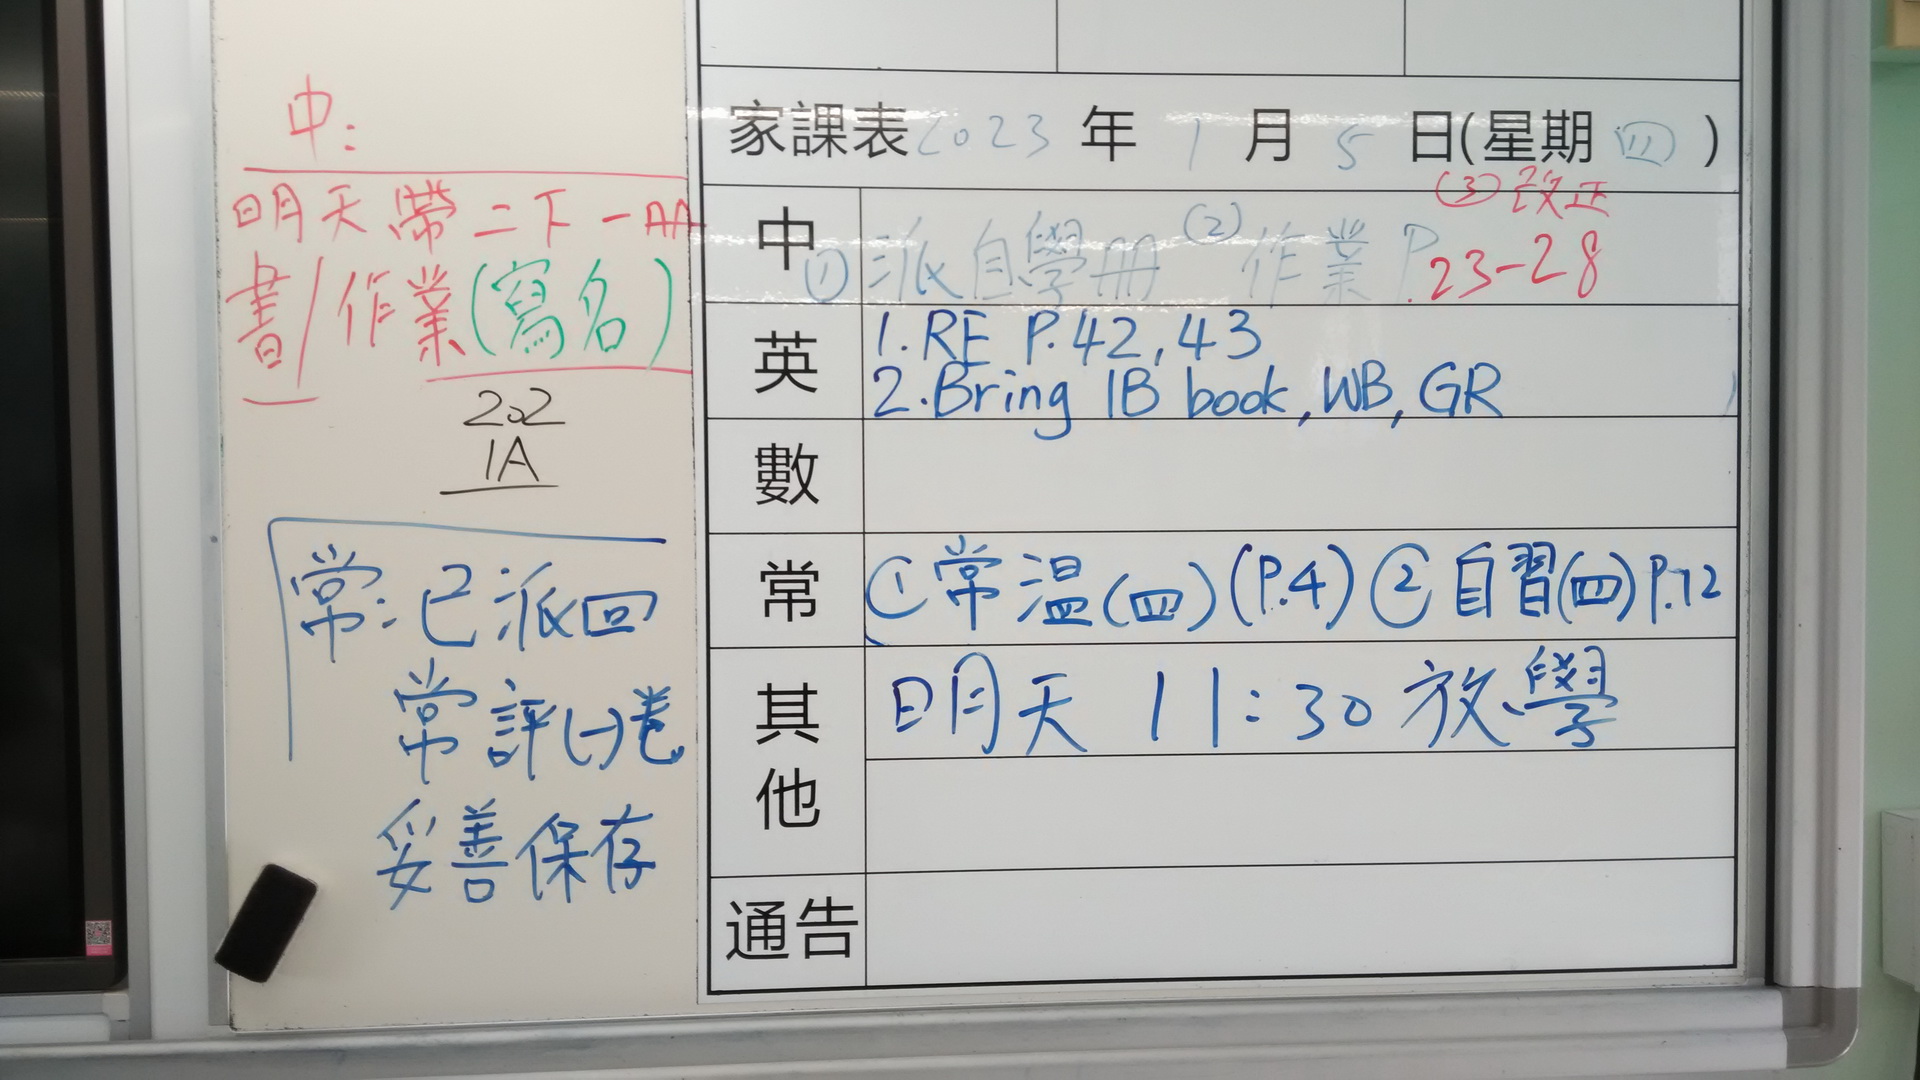 中:
明天帶二下一AA
書/作業(寫名)
202
1A
常:已派回
常評(一)卷
妥善保存
家課表2023年1月5日(星期四)
中 ①派自學冊 (2)作業P.23-28 (3)改正
英 1.RE P.42,43
2.Bring 1B book, WB, GR
數
常 ①常溫(四)(P.4)②自習(四)P.12
其他 明天11:30放學
通告